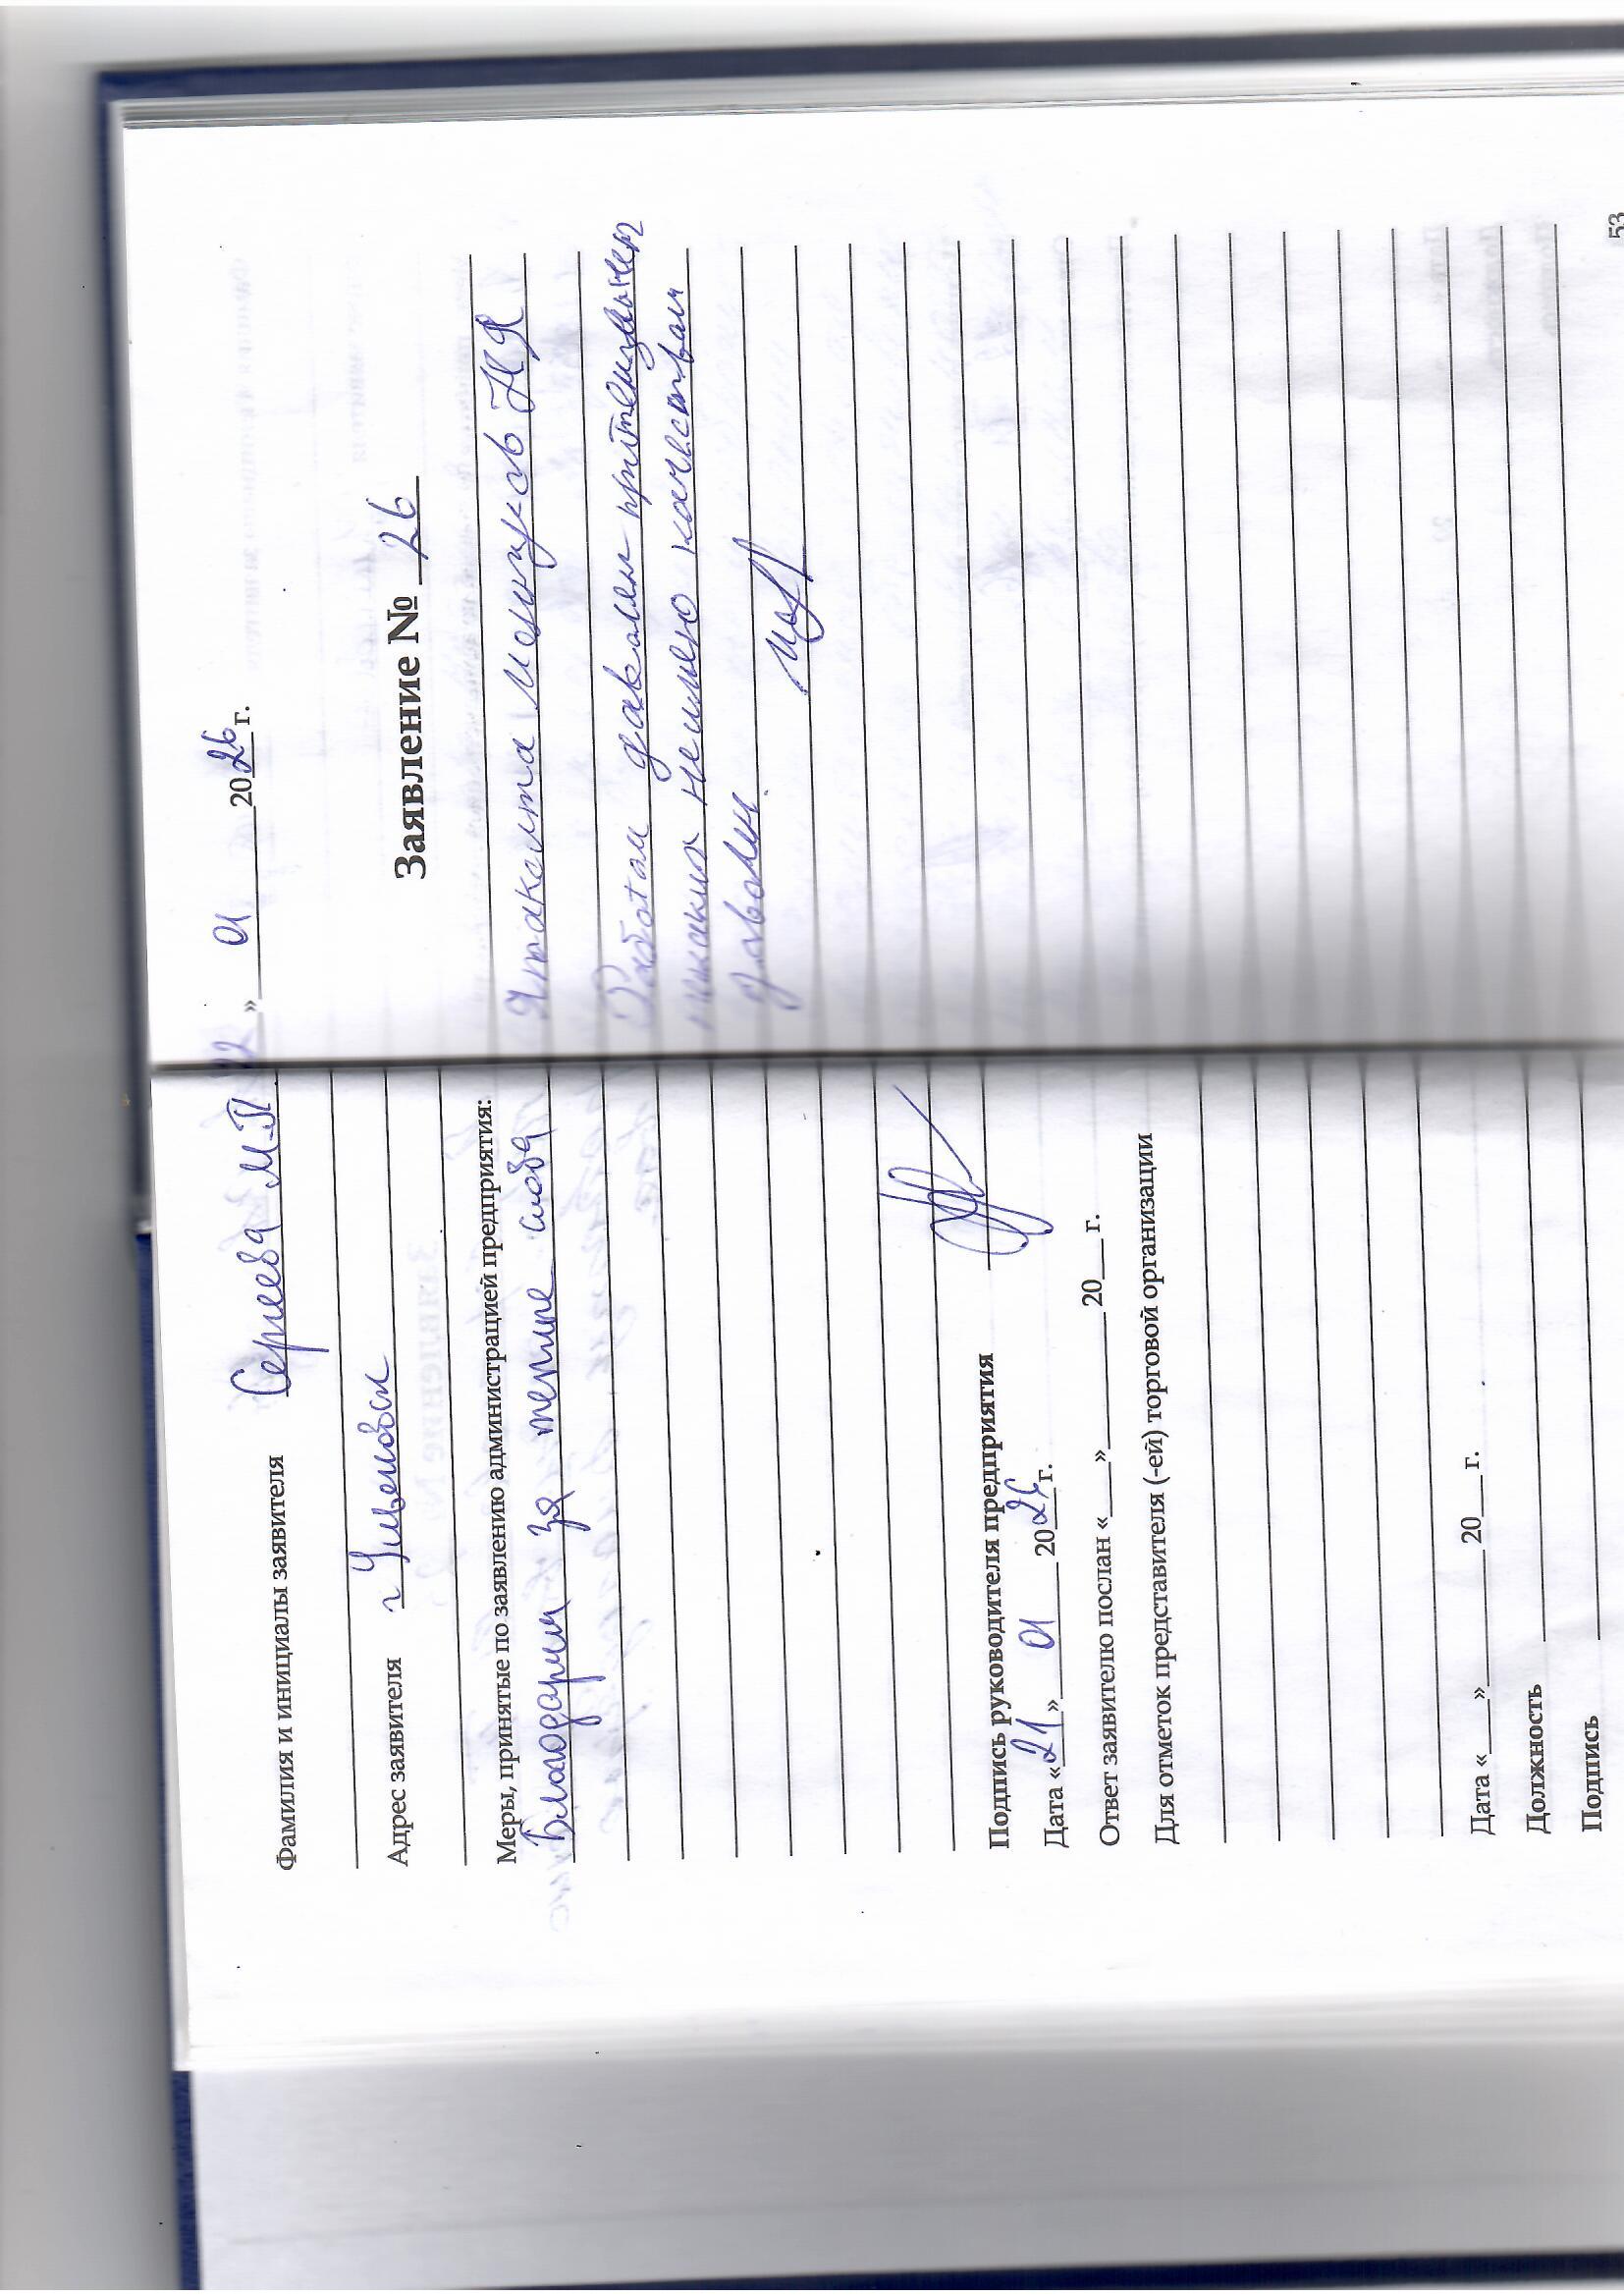 Фамилия и инициалы заявителя Сергеева М.П
Адрес заявителя г
Меры, принятые по заявлению администрацией предприятия:
Благодарим за теплые слова
Подпись руководителя предприятия
Дата «21» 01 2026 г.
Ответ заявителю послан «___» ______ 20__ г.
Для отметок представителя (-ей) торговой организации
Дата «___» ______ 20__ г.
Должность
Подпись
22 » 01 2026 г.
Заявление № 26
Я
Работай
никаких неимею качеством
53